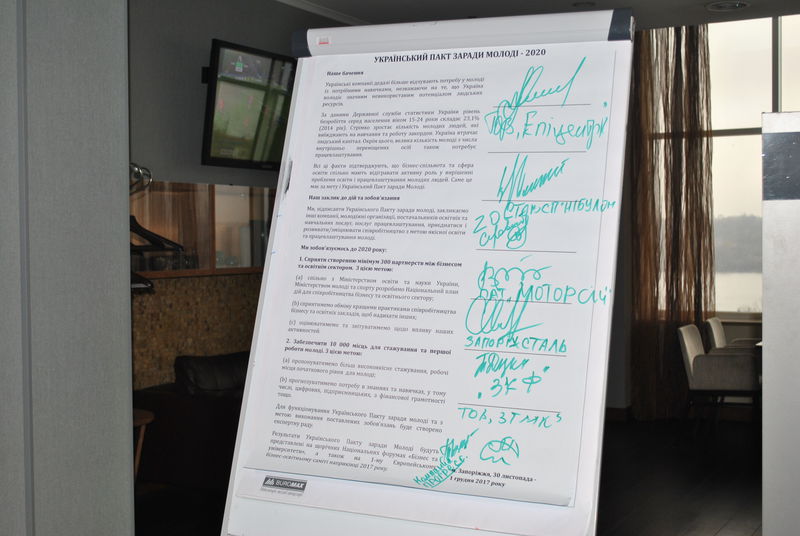 УКРАЇНСЬКИЙ ПАКТ ЗАРАДИ МОЛОДІ - 2020
Наше бачення
Українські компанії дедалі більше відчувають потребу у молоді
із потрібними навичками, незважаючи на те, що Україна
володіє значним невикористаним потенціалом людських
ресурсів.
За даними Державної служби статистики України рівень
безробіття серед населення віком 15-24 роки складає 23,1%
(2014 рік). Стрімко зростає кількість молодих людей, які
виїжджають на навчання та роботу закордон. Україна втрачає
людський капітал. Окрім цього, велика кількість молоді з числа
внутрішньо переміщених осіб також потребує
працевлаштування.
Всі ці факти підтверджують, що бізнес-спільнота та сфера
освіти спільно мають відігравати активну роль у вирішенні
проблеми освіти і працевлаштування молодих людей. Саме це
має за мету і Український Пакт заради Молоді.
Наш заклик до дій та зобов'язання
Ми, підписанти Українського Пакту заради молоді, закликаємо
інші компанії, молодіжні організації, постачальників освітніх та
навчальних послуг, послуг працевлаштування, приєднатися і
розвивати/зміцнювати співробітництво з метою якісної освіти
та працевлаштування молоді.
Ми зобов'язуємось до 2020 року:
1. Сприяти створенню мінімум 300 партнерств між бізнесом
та освітнім сектором. З цією метою:
(а) спільно з Міністерством освіти та науки України,
Міністерством молоді та спорту розробимо Національний план
дій для співробітництва бізнесу та освітнього сектору;
(b) сприятимемо обміну кращими практиками співробітництва
бізнесу та освітніх закладів, щоб надихати інших;
(с) оцінюватимемо та звітуватимемо щодо впливу наших
активностей.
2. Забезпечити 10 000 місць для стажування та першої
роботи молоді. З цією метою:
(а) пропонуватимемо більш високоякісне стажування, робочі
місця початкового рівня для молоді;
(b) прогнозуватимемо потребу в знаннях та навичках, у тому
числі, цифрових, підприємницьких, з фінансової грамотності
тощо.
Для функціонування Українського Пакту заради молоді та з
метою виконання поставлених зобов'язань буде створено
експертну раду.
Результати Українського Пакту заради Молоді будуть
представлені на щорічних Національних форумах «Бізнес та
університети», а також на 1-му Європейському
бізнес-освітньому саміті наприкінці 2017 року.
ТОВ „Епіцентр К"
ПАТ „МОТОР СІЧ"
ЗАПОРІЖСТАЛЬ
„ЗКФ"
ТОВ „ЗТМК"
м. Запоріжжя, 30 листопада -
1 грудня 2017 року
BUROMAX